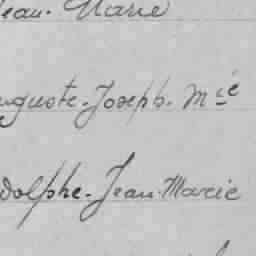 Jean. Marie
Auguste. Joseph. Mie
Adolphe. Jean. Marie